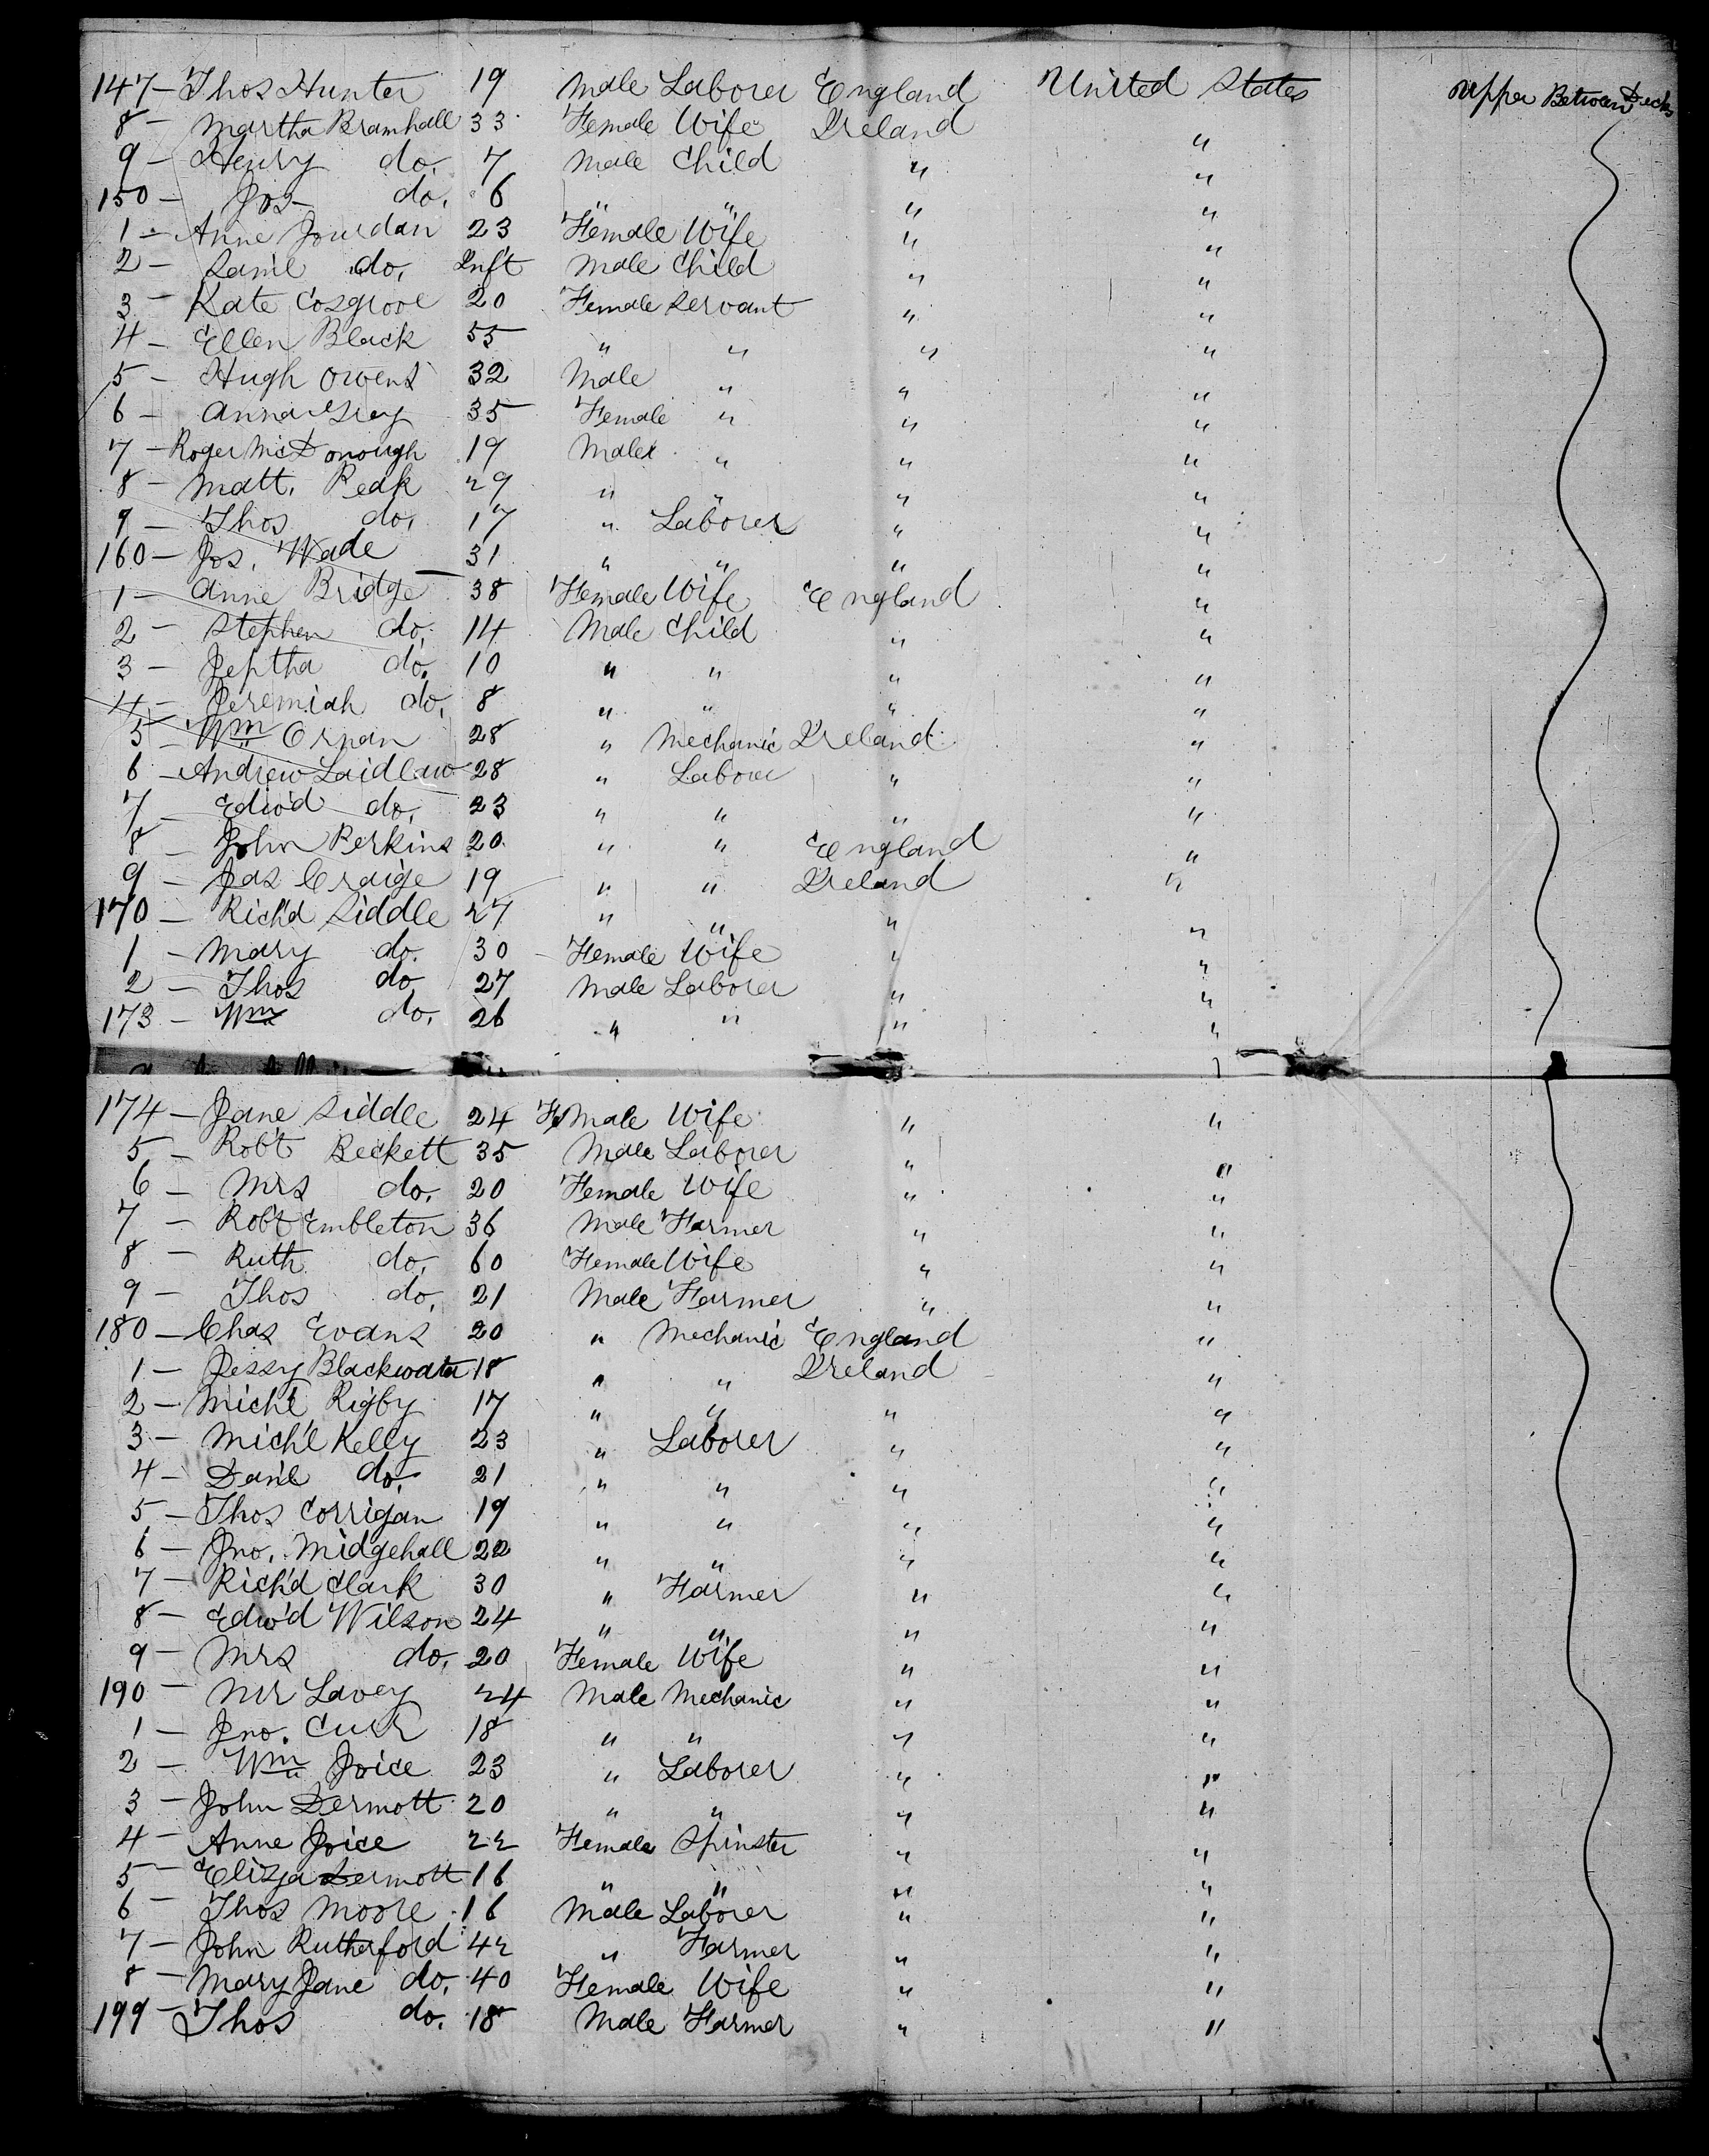 147 - Thos Hunter 19 Male Laborer England United States Upper Between Decks
8 - Martha Bramhall 33 Female Wife Ireland "
9 - Henry do. 7 Male Child " "
150 - Jos - do. 6 " " " "
1 - Anne Jourdan 23 Female Wife " "
2 - Sam'l do. Inft Male Child " "
3 - Kate Cosgrove 20 Female Servant " "
4 - Ellen Black 55 " " " "
5 - Hugh Owens 32 Male " " "
6 - Anna Grey 35 Female " " "
7 - Roger McDonough 19 Male " " "
8 - Matt. Peak 29 " " " "
9 - Thos do. 17 " Laborer " "
160 - Jos. Wade 31 " " " "
1 - Anne Bridge 38 Female Wife England "
2 - Stephen do. 14 Male Child " "
3 - Jeptha do. 10 " " " "
4 - Jeremiah do. 8 " " " "
5 - Wm Orpan 28 " Mechanic Ireland "
6 - Andrew Laidlaw 28 " Laborer " "
7 - Edw'd do. 23 " " " "
8 - John Perkins 20 " " England "
9 - Jas Craige 19 " " Ireland "
170 - Rich'd Siddle 27 " " " "
1 - Mary do. 30 Female Wife " "
2 - Thos do 27 Male Laborer " "
173 - Wm do. 26 " " " "
174 - Jane Siddle 24 Female Wife " "
5 - Rob't Beckett 35 Male Laborer " "
6 - Mrs do. 20 Female Wife " "
7 - Rob't Embleton 36 Male Farmer " "
8 - Ruth do. 60 Female Wife " "
9 - Thos do. 21 Male Farmer " "
180 - Chas Evans 20 " Mechanic England "
1 - Jessy Blackwater 18 " " Ireland "
2 - Mich'l Rigby 17 " " " "
3 - Mich'l Kelly 23 " Laborer " "
4 - Dan'l do. 21 " " " "
5 - Thos Corrigan 19 " " " "
6 - Jno. Midgehall 22 " " " "
7 - Rich'd Clark 30 " Farmer " "
8 - Edw'd Wilson 24 " " " "
9 - Mrs do. 20 Female Wife " "
190 - Mr Lavey 24 Male Mechanic " "
1 - Jno. Curr 18 " " " "
2 - Wm Joice 23 " Laborer " "
3 - John Dermott 20 " " " "
4 - Anne Joice 22 Female Spinster " "
5 - Eliza Dermott 16 " " " "
6 - Thos Moore 16 Male Laborer " "
7 - John Rutherford 42 " Farmer " "
8 - Mary Jane do. 40 Female Wife " "
199 - Thos do. 18 Male Farmer " "